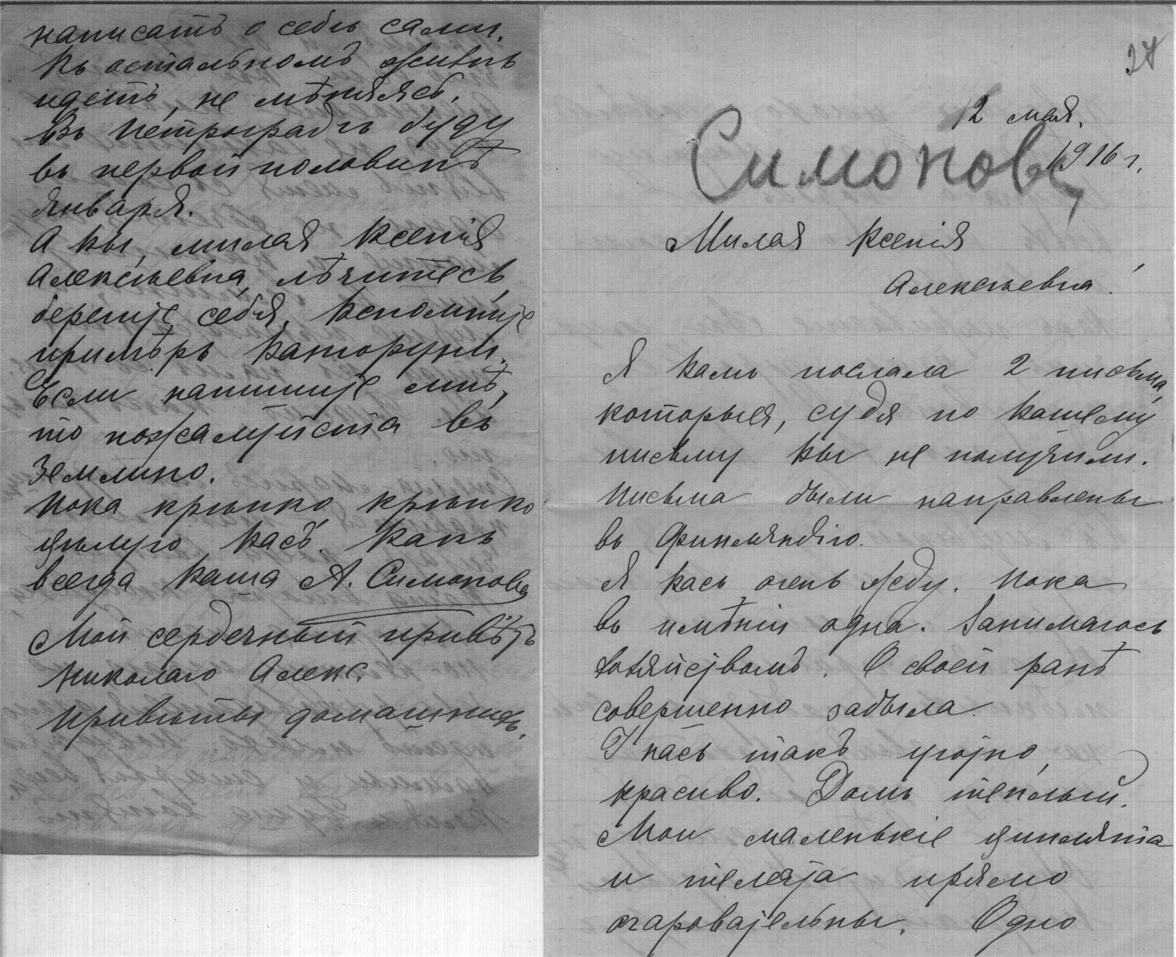 написать о себѣ сами.
Въ остальномъ жизнь
идетъ, не мѣняясь.
Въ Петроградѣ буду
въ первой половинѣ
Января.
А Вы, милая Ксенія
Алексѣевна, лѣчитесь,
берегите себя, вспомните
примѣръ
Если напишите мнѣ,
то пожалуйста въ
Землино.
Пока крѣпко, крѣпко
цѣлую Васъ. Какъ
всегда Ваша А. Симонова
Мой сердечный привѣтъ
Николаю Алекс.
Привѣты домашнимъ.
24
12 мая.
1916 г.
Симонова
Милая Ксенія
Алексѣевна!
Я Вамъ послала 2 письма,
которыя, судя по Вашему
письму Вы не получили.
Письма были направлены
въ Финляндію.
Я Васъ очень жду. Пока
въ имѣніи одна. Занимаюсь
хозяйствомъ. О своей ранѣ
совершенно забыла.
У насъ такъ уютно,
красиво. Домъ теплый.
Мои маленькіе циплята
и телята прямо
очаровательны. Одно